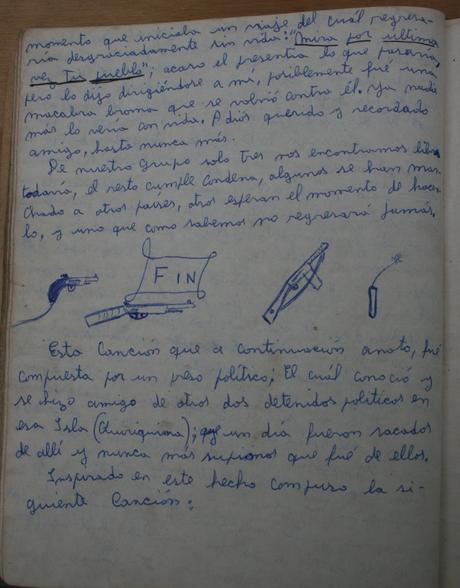 momento que iniciaba un viaje del cuál regresa-
ría desgraciadamente sin vida: "Mira por última
vez tu pueblo"; acaso el presentía lo que pasaría,
pero lo dijo dirigiéndose a mí, posiblemente fué una
macabra broma que se volvió contra él. Ya nadie
más lo vería con vida. Adiós querido y recordado
amigo, hasta nunca más.
De nuestro grupo solo tres nos encontramos libres
todavía, el resto cumple condena, algunos se han mar
chado a otros países, otros esperan el momento de hacer
lo, y uno que como sabemos no regresará jamás.
FIN
Esta Canción que a continuación anoto, fué
compuesta por un preso político; El cuál conoció y
se hizo amigo de otros dos detenidos políticos en
esa Isla (Quiriquina); que un día fueron sacados
de allí y nunca más supimos que fué de ellos.
Inspirado en este hecho compuso la si-
guiente Canción: